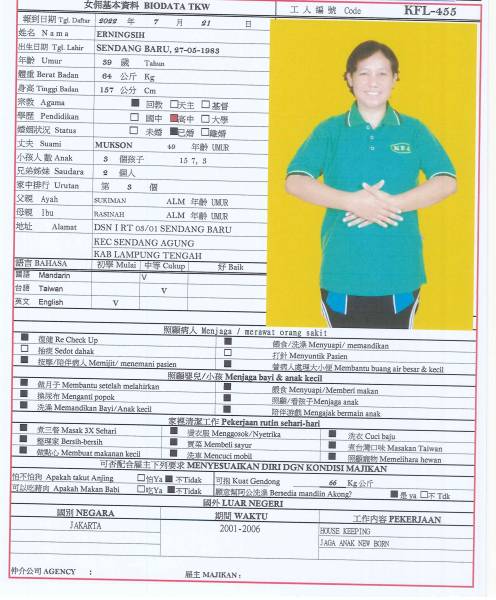 女佣基本資料 BIODATA TKW
工人編號 Code KFL-455
報到日期 Tgl. Daftar 2022 年 7 月 21 日
姓名 Nama ERNINGSIH
出生日期 Tgl. Lahir SENDANG BARU, 27-05-1983
年齡 Umur 39 歲 Tahun
體重 Berat Badan 64 公斤 Kg
身高 Tinggi Badan 157 公分 Cm
宗教 Agama ■ 回教 □天主 □基督
學歷 Pendidikan □ 國中 ■高中 □大學
婚姻狀況 Status □ 未婚 ■已婚 □離婚
丈夫 Suami MUKSON 40 年齡 UMUR
小孩人數 Anak 3 個孩子 15 7, 3
兄弟姊妹 Saudara 2 個人
家中排行 Urutan 第 3 個
父親 Ayah SUKIMAN ALM 年齡 UMUR
母親 Ibu RASINAH ALM 年齡 UMUR
地址 Alamat DSN I RT 03/01 SENDANG BARU
KEC SENDANG AGUNG
KAB LAMPUNG TENGAH
語言 BAHASA 初學 Mulai 中等 Cukup 好 Baik
國語 Mandarin V
台語 Taiwan V
英文 English V
照顧病人 Menjaga / merawat orang sakit
■ 復健 Re Check Up ■ 餵食/洗澡 Menyuapi/ memandikan
□ 抽痰 Sedot dahak □ 打針 Menyuntik Pasien
■ 按摩/陪伴病人 Memijit/ menemani pasien ■ 替病人處理大小便 Membantu buang air besar & kecil
照顧嬰兒/小孩 Menjaga bayi & anak kecil
■ 做月子 Membantu setelah melahirkan ■ 餵食 Menyuapi/Memberi makan
■ 換尿布 Menganti popok ■ 照顧/看孩子Menjaga anak
■ 洗澡 Memandikan Bayi/Anak kecil ■ 陪伴遊戲 Mengajak bermain anak
家裡清潔工作 Pekerjaan rutin sehari-hari
■ 煮三餐 Masak 3X Sehari ■ 燙衣服 Menggosok/Nyetrika ■ 洗衣 Cuci baju
■ 整理家 Bersih-bersih ■ 買菜 Membeli sayur ■ 煮台灣口味 Masakan Taiwan
■ 做點心 Membuat makanan kecil ■ 洗車 Mencuci mobil ■ 照顧寵物 Memelihara hewan
可否配合雇主下列要求 MENYESUAIKAN DIRI DGN KONDISI MAJIKAN
怕不怕狗 Apakah takut Anjing □怕Ya ■不Tidak 可抱 Kuat Gendong 66 Kg 公斤
可以吃豬肉 Apakah Makan Babi □吃Ya ■不Tidak 願意幫阿公洗澡 Bersedia mandiin Akong? ■ 是 ya □不 Tdk
國外 LUAR NEGERI
國別 NEGARA 期間 WAKTU 工作內容 PEKERJAAN
JAKARTA 2001-2006 HOUSE KEEPING
JAGA ANAK NEW BORN
仲介公司 AGENCY :
雇主 MAJIKAN :